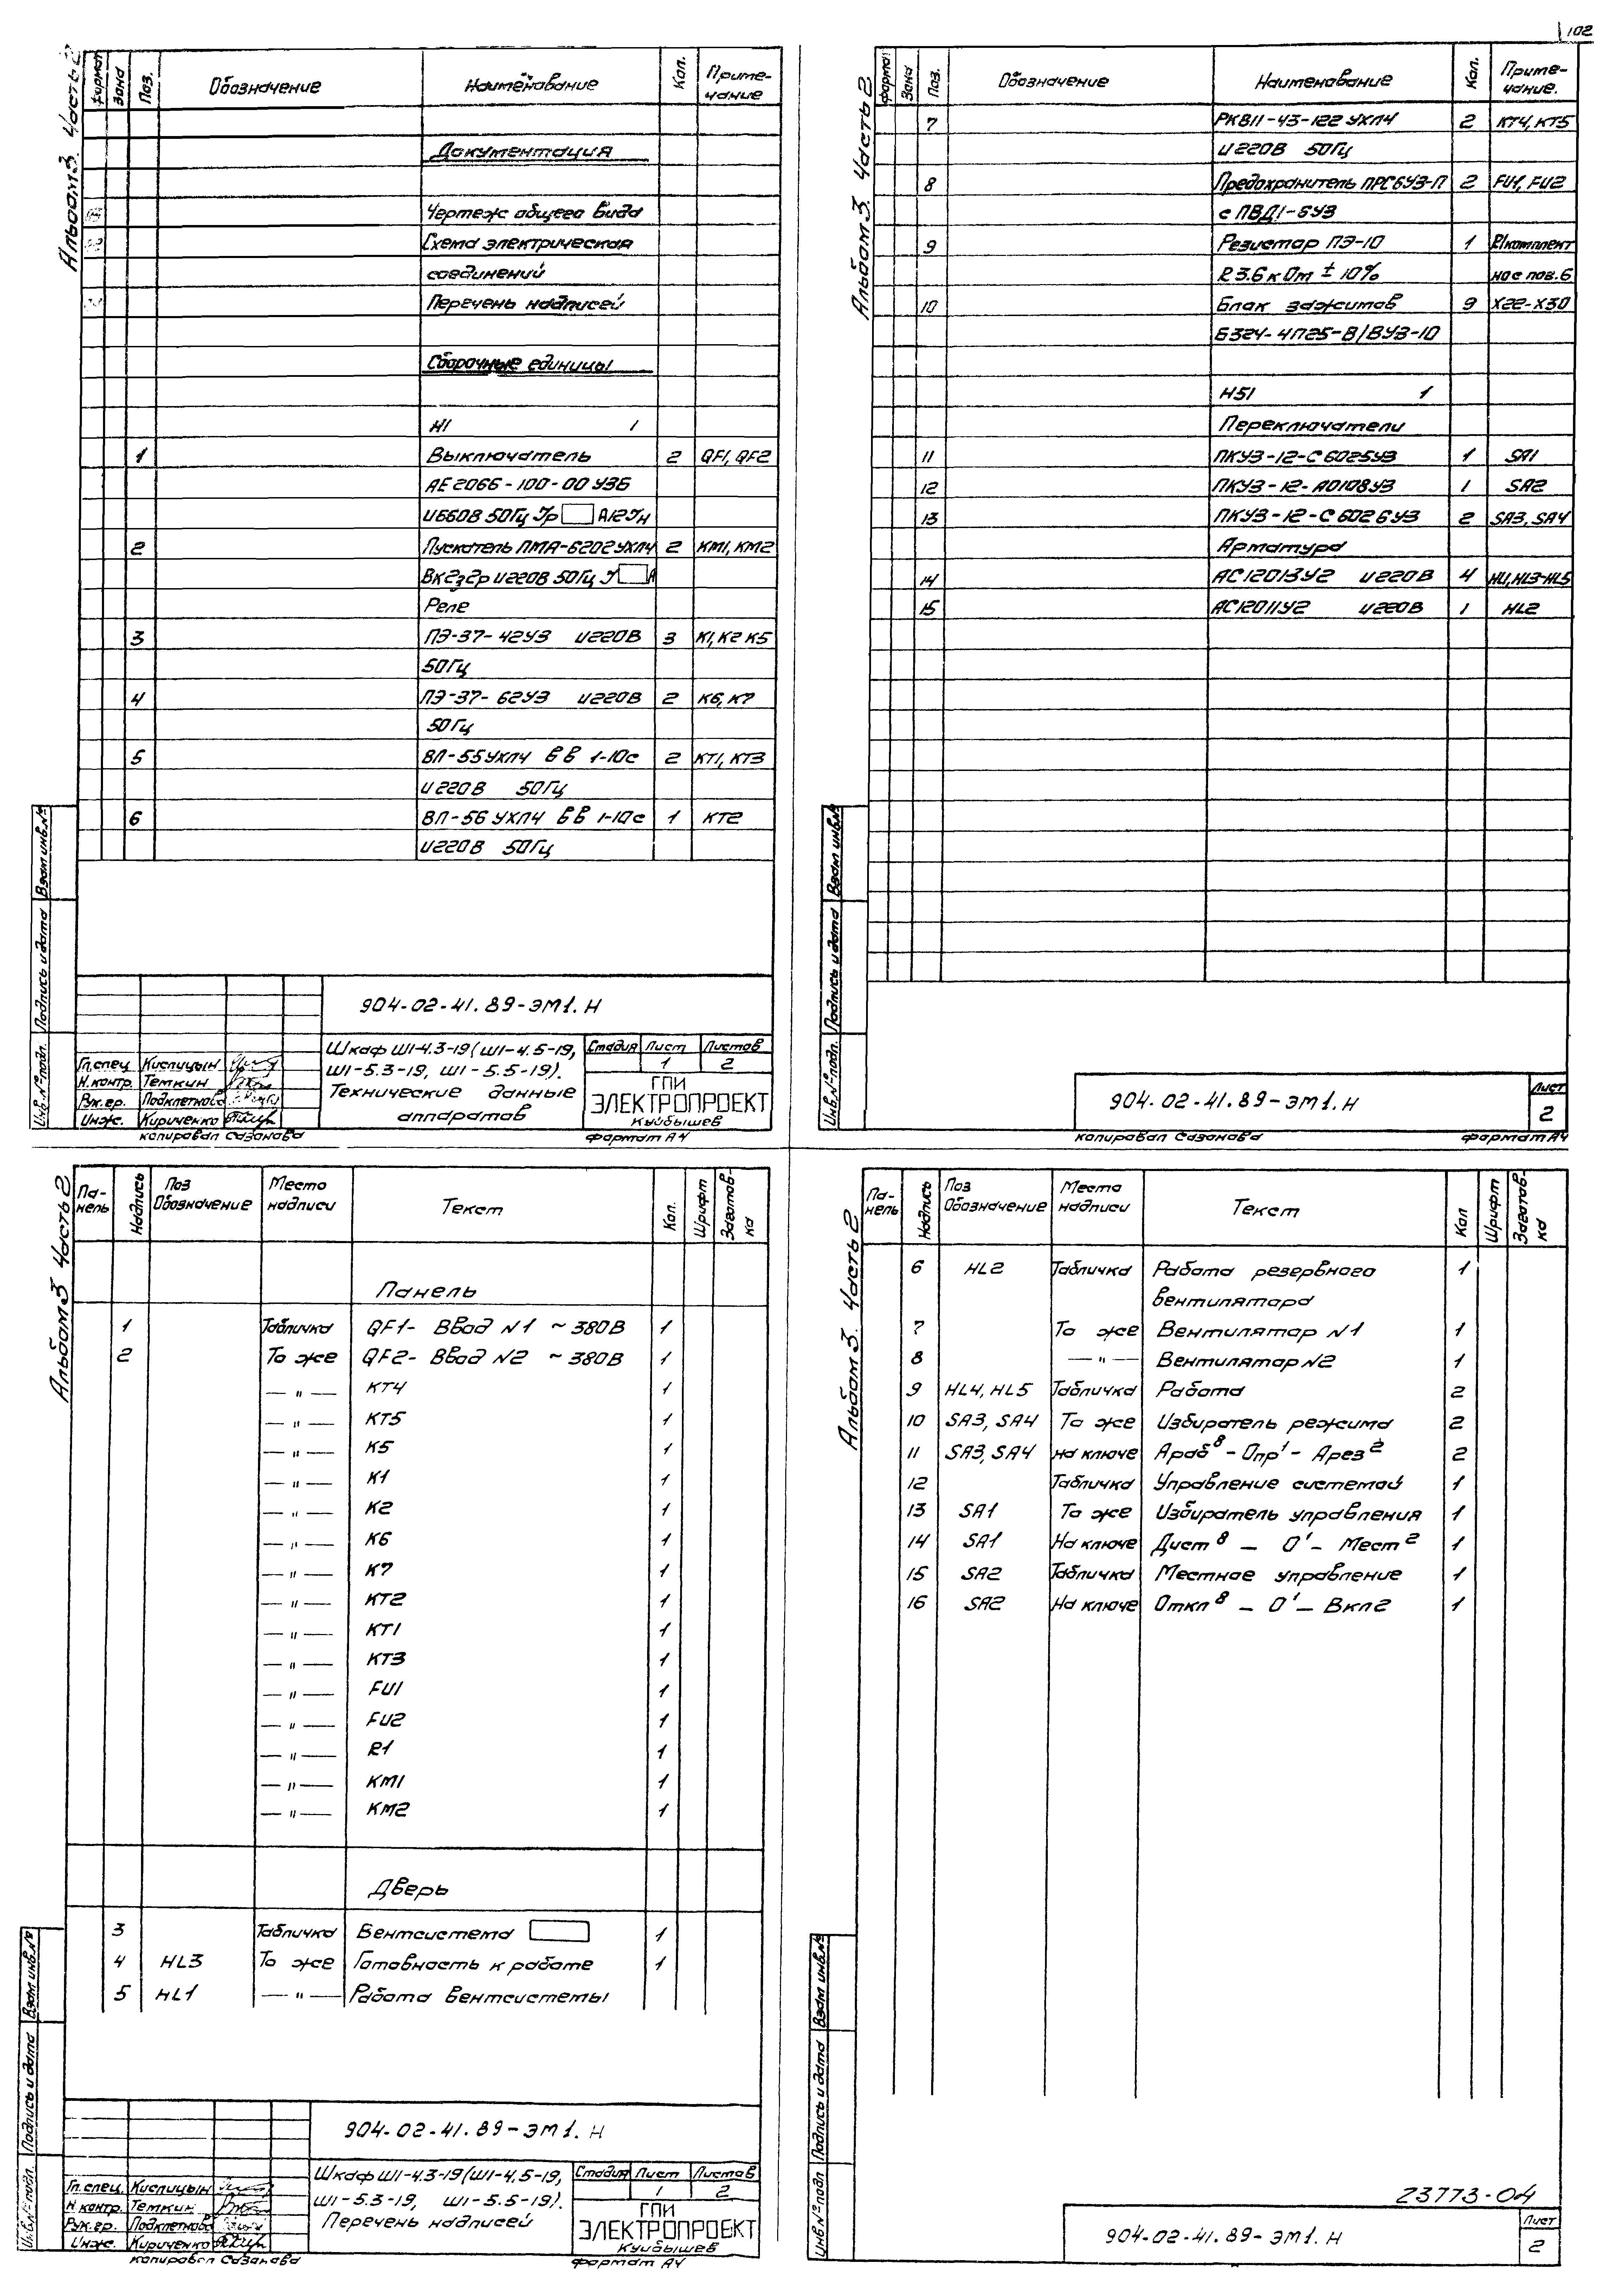 102
Альбом 3. Часть 2
Формат Зона Поз. Обозначение Наименование Кол. Приме-
чание
Документация
Чертеж общего вида
Схема электрическая
соединений
Перечень надписей
Сборочные единицы
Н1 1
1 Выключатель 2 QF1, QF2
АЕ2066-100-00 УЗБ
U660В 50Гц Iр А12Iн
2 Пускатель ПМА-6202УХЛ4 2 КМ1, КМ2
Вк2з2р U220В 50Гц I А
Реле
3 ПЭ-37-42УЗ U220В 3 К1, К2 К5
50Гц
4 ПЭ-37-62УЗ U220В 2 К6, К7
50Гц
5 ВЛ-55УХЛ4 ВВ 1-10с 2 КТ1, КТ3
U220В 50Гц
6 ВЛ-56 УХЛ4 ВВ 1-10с 1 КТ2
U220В 50Гц
Инв.№подл. Подпись и дата Взам инв.№
904-02-41.89-ЭМ1.Н
Шкаф Ш1-4.3-19(Ш1-4.5-19,
Ш1-5.3-19, Ш1-5.5-19).
Технические данные
аппаратов
Стадия Лист Листов
1 2
ГПИ
ЭЛЕКТРОПРОЕКТ
Куйбышев
Гл.спец Кислицын
Н.контр. Темкин
Рук.гр. Подклетнова
Инж. Кириченко
копировал Сазанова формат А4
Альбом 3. Часть 2
Формат Зона Поз. Обозначение Наименование Кол. Приме-
чание.
7 РКВ11-43-122 УХЛ4 2 КТ4, КТ5
U220В 50Гц
8 Предохранитель ПРС6УЗ-П 2 FU1, FU2
с ПВД1-6УЗ
9 Резистор ПЭ-10 1 R1комплект
R 3.6 кОм ± 10% но с поз.6
10 Блок зажимов 9 Х22-Х30
БЗ24-4П25-В/ВУЗ-10
Н51 1
Переключатели
11 ПКУЗ-12-С6025УЗ 1 SA1
12 ПКУЗ-12-А0108УЗ 1 SA2
13 ПКУЗ-12-С6026УЗ 2 SA3, SA4
Арматура
14 АС12013У2 U220В 4 HL1, HL3-HL5
15 АС12011У2 U220В 1 HL2
Инв.№подл. Подпись и дата Взам инв.№
904-02-41.89-ЭМ1.Н
Лист
2
копировал Сазанова формат А4
Альбом 3 Часть 2
Па-
нель Надпись Поз
Обозначение Место
надписи Текст Кол. Шрифт Заготов-
ка
Панель
1 Табличка QF1- Ввод N1 ~380В 1
2 То же QF2- Ввод N2 ~380В 1
— " — КТ4 1
— " — КТ5 1
— " — К5 1
— " — К1 1
— " — К2 1
— " — К6 1
— " — К7 1
— " — КТ2 1
— " — КТ1 1
— " — КТ3 1
— " — FU1 1
— " — FU2 1
— " — R1 1
— " — КМ1 1
— " — КМ2 1
Дверь
3 Табличка Вентсистема 1
4 HL3 То же Готовность к работе 1
5 HL1 — " — Работа вентсистемы
Инв.№подл. Подпись и дата Взам инв.№
904-02-41.89-ЭМ1.Н
Шкаф Ш1-4.3-19(Ш1-4.5-19,
Ш1-5.3-19, Ш1-5.5-19).
Перечень надписей
Стадия Лист Листов
1 2
ГПИ
ЭЛЕКТРОПРОЕКТ
Куйбышев
Гл.спец. Кислицын
Н контр. Темкин
Рук.гр. Подклетнова
Инж. Кириченко
копировал Сазанова формат А4
Альбом 3. Часть 2
Па-
нель Надпись Поз
Обозначение Место
надписи Текст Кол Шрифт Заготов-
ка
6 HL2 Табличка Работа резервного 1
вентилятора
7 То же Вентилятор N1 1
8 — " — Вентилятор N2 1
9 HL4, HL5 Табличка Работа 2
10 SA3, SA4 То же Избиратель режима 2
11 SA3, SA4 на ключе Араб⁸ - Опр¹ - Арез² 2
12 Табличка Управление системой 1
13 SA1 То же Избиратель управления 1
14 SA1 На ключе Дист⁸ — О¹ — Мест² 1
15 SA2 Табличка Местное управление 1
16 SA2 На ключе Откл⁸ — О¹ — Вкл2 1
Инв.№подл Подпись и дата Взам инв.№
23773-04
904-02-41.89-ЭМ1.Н
Лист
2